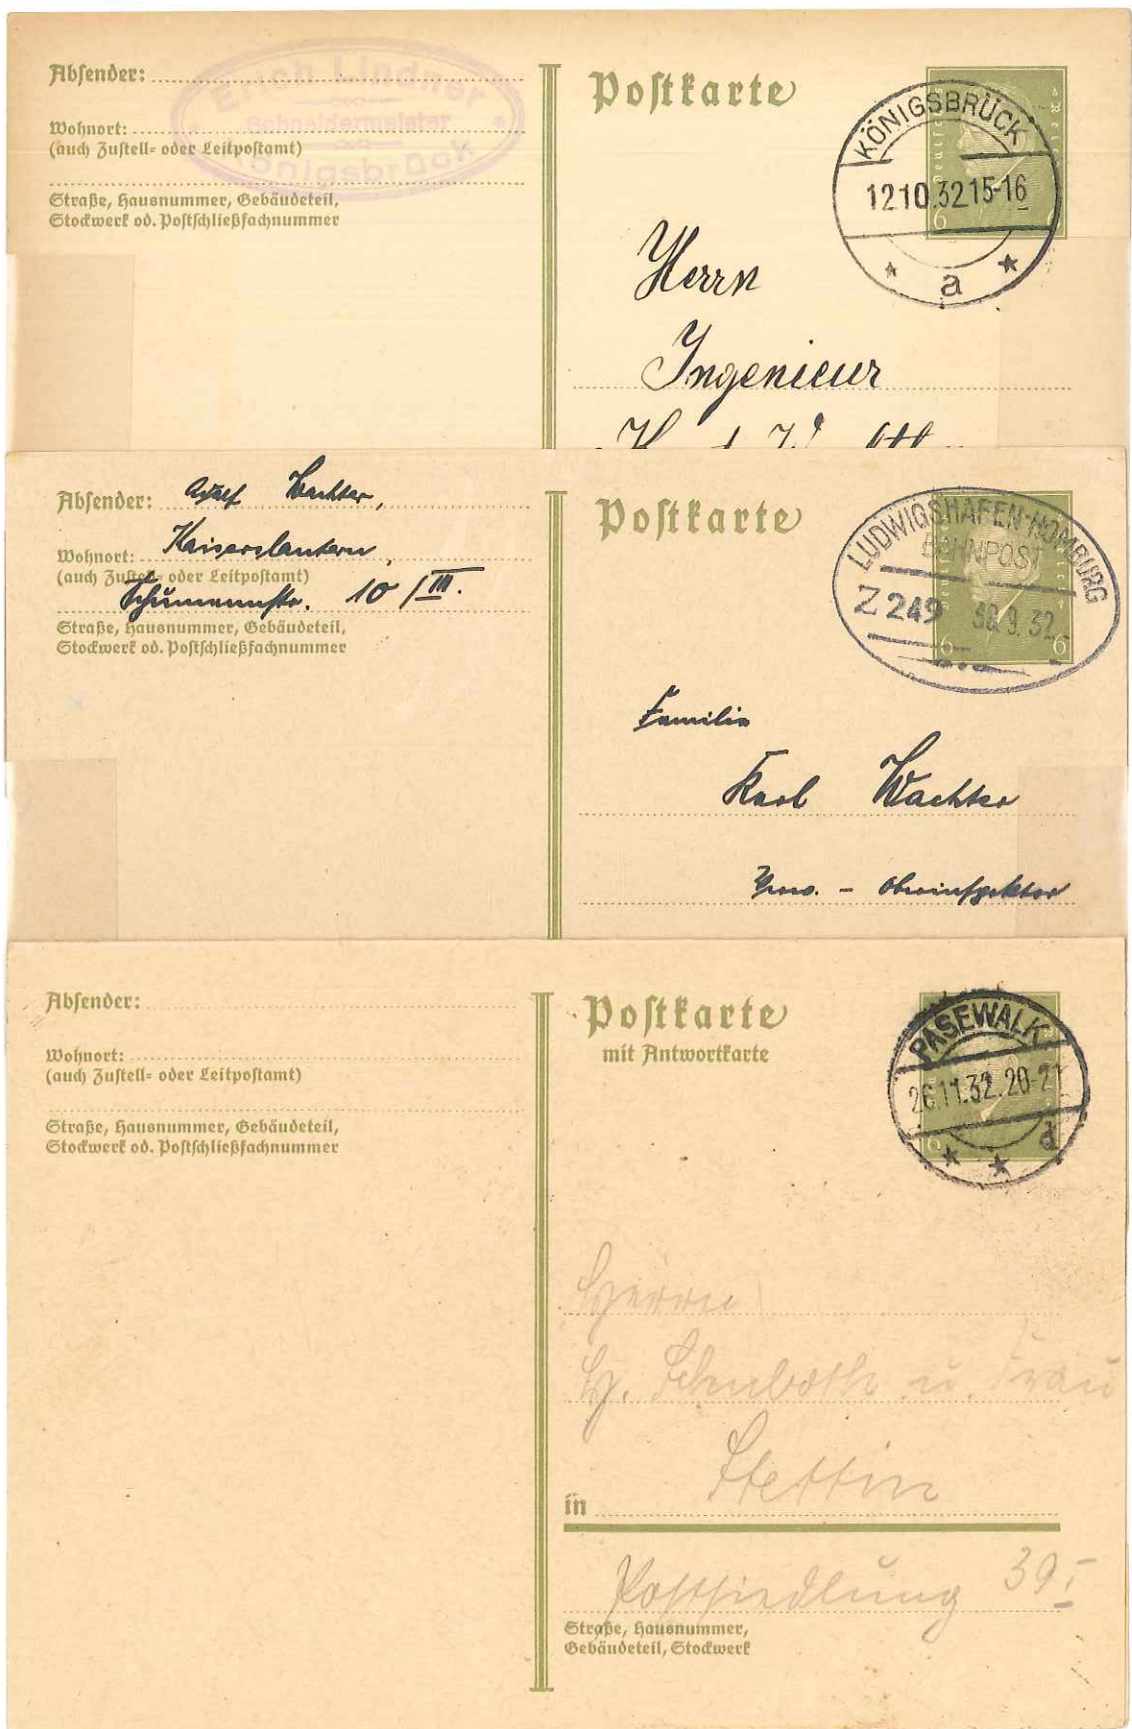 Absender:
Erich Lindner
Schneidermeister
Königsbrück
Wohnort:
(auch Zustell- oder Leitpostamt)
Straße, Hausnummer, Gebäudeteil,
Stockwerk od. Postschließfachnummer
Postkarte
KÖNIGSBRÜCK
12.10.32.15-16
* a *
6 6
Herrn
Ingenieur
Absender: Adolf Wachter,
Wohnort: Kaiserslautern,
(auch Zustell- oder Leitpostamt)
Schumannstr. 10/III.
Straße, Hausnummer, Gebäudeteil,
Stockwerk od. Postschließfachnummer
Postkarte
LUDWIGSHAFEN-HOMBURG
BAHNPOST
Z 249 30.9.32
6 6
Familie
Karl Wachter
- Oberinspektor
Absender:
Wohnort:
(auch Zustell- oder Leitpostamt)
Straße, Hausnummer, Gebäudeteil,
Stockwerk od. Postschließfachnummer
Postkarte
mit Antwortkarte
PASEWALK
26.11.32.20-21
* * d
6
Herrn
u. Frau
Stettin
in
Postsiedlung 39 I
Straße, Hausnummer,
Gebäudeteil, Stockwerk